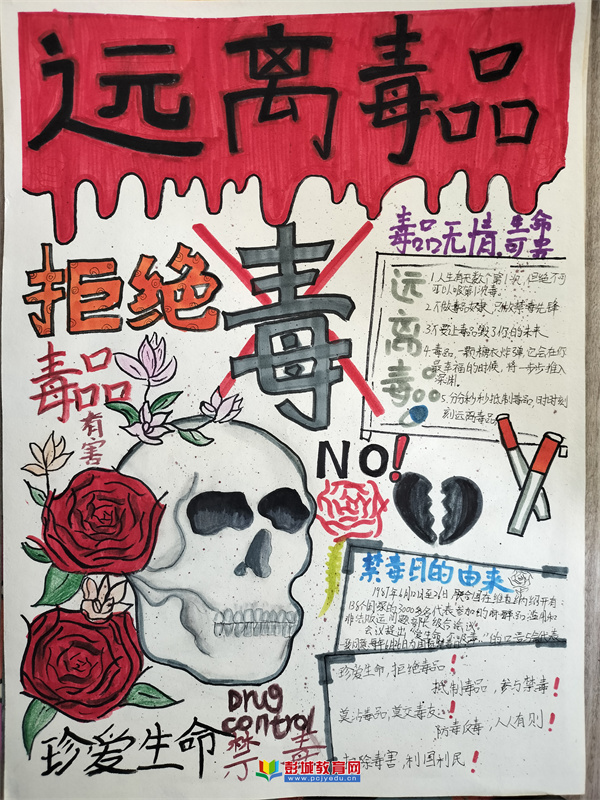 远离毒品
毒品无情 生命可贵
拒绝
毒
毒品
有害
远离毒品
1.人生有无数个第1次,但绝不可
可以吸第1次毒。
2.不做毒品奴隶,只做禁毒先锋
3.不要让毒品毁了你的未来
4.毒品,一颗糖衣炸弹,它会在你
最幸福的时候,将一步步推入
深渊
5.分分秒秒抵制毒品,时时刻
刻远离毒品
NO!
禁毒日的由来
1987年6月12日至26日 联合国在维也纳召开有
138个国家的3000多名代表参加的麻醉品滥用和
非法贩运问题部长级会议
会议提出
珍爱生命,拒绝毒品!
抵制毒品,参与禁毒!
莫沾毒品,莫交毒友!
防毒反毒,人人有则!
除毒害,利国利民!
Drug
control
禁毒
珍爱生命
彭城教育网
www.pcjyedu.cn